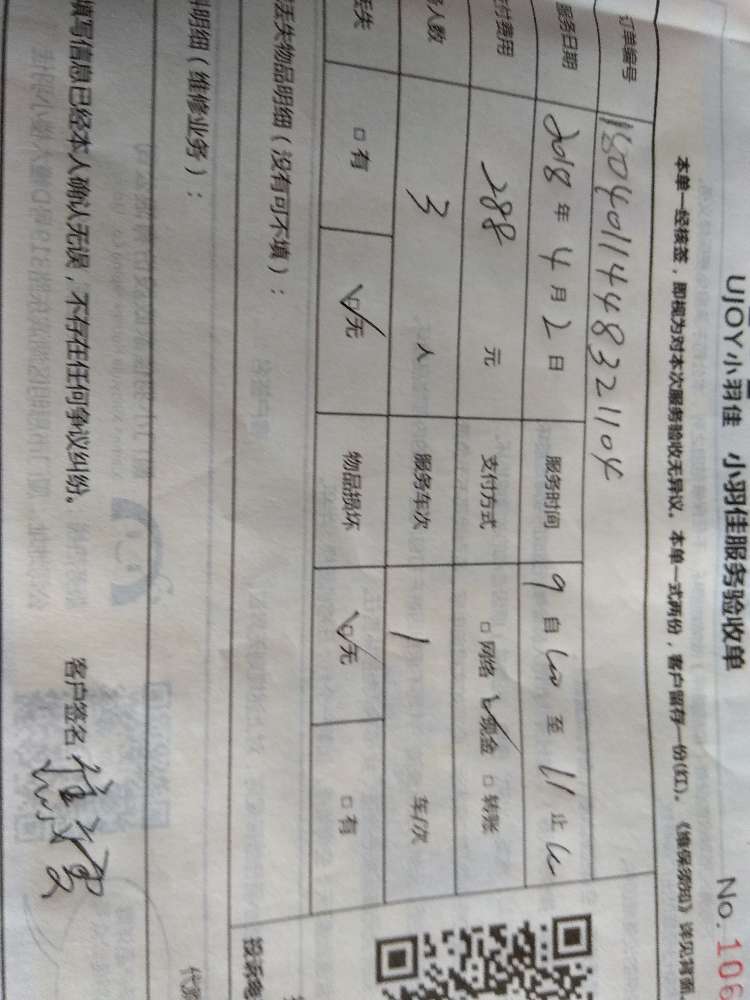 UJOY小羽佳 小羽佳服务验收单 No. 106
本单一经核签，即视为对本次服务验收无异议。本单一式两份，客户留存一份(红)。《维保须知》详见背面
订单编号 180401144832 1104
服务日期 2018 年 4 月 2 日 服务时间 9 自 至 11 止
付费用 288 元 支付方式 □ 网络 ☑ 现金 □ 转账
人数 3 人 服务车次 1 车/次
丢失 □ 有 ☑ 无 物品损坏 ☑ 无 □ 有
丢失物品明细（没有可不填）：
明细（维修业务）：
填写信息已经本人确认无误，不存在任何争议纠纷。 客户签名
投诉电